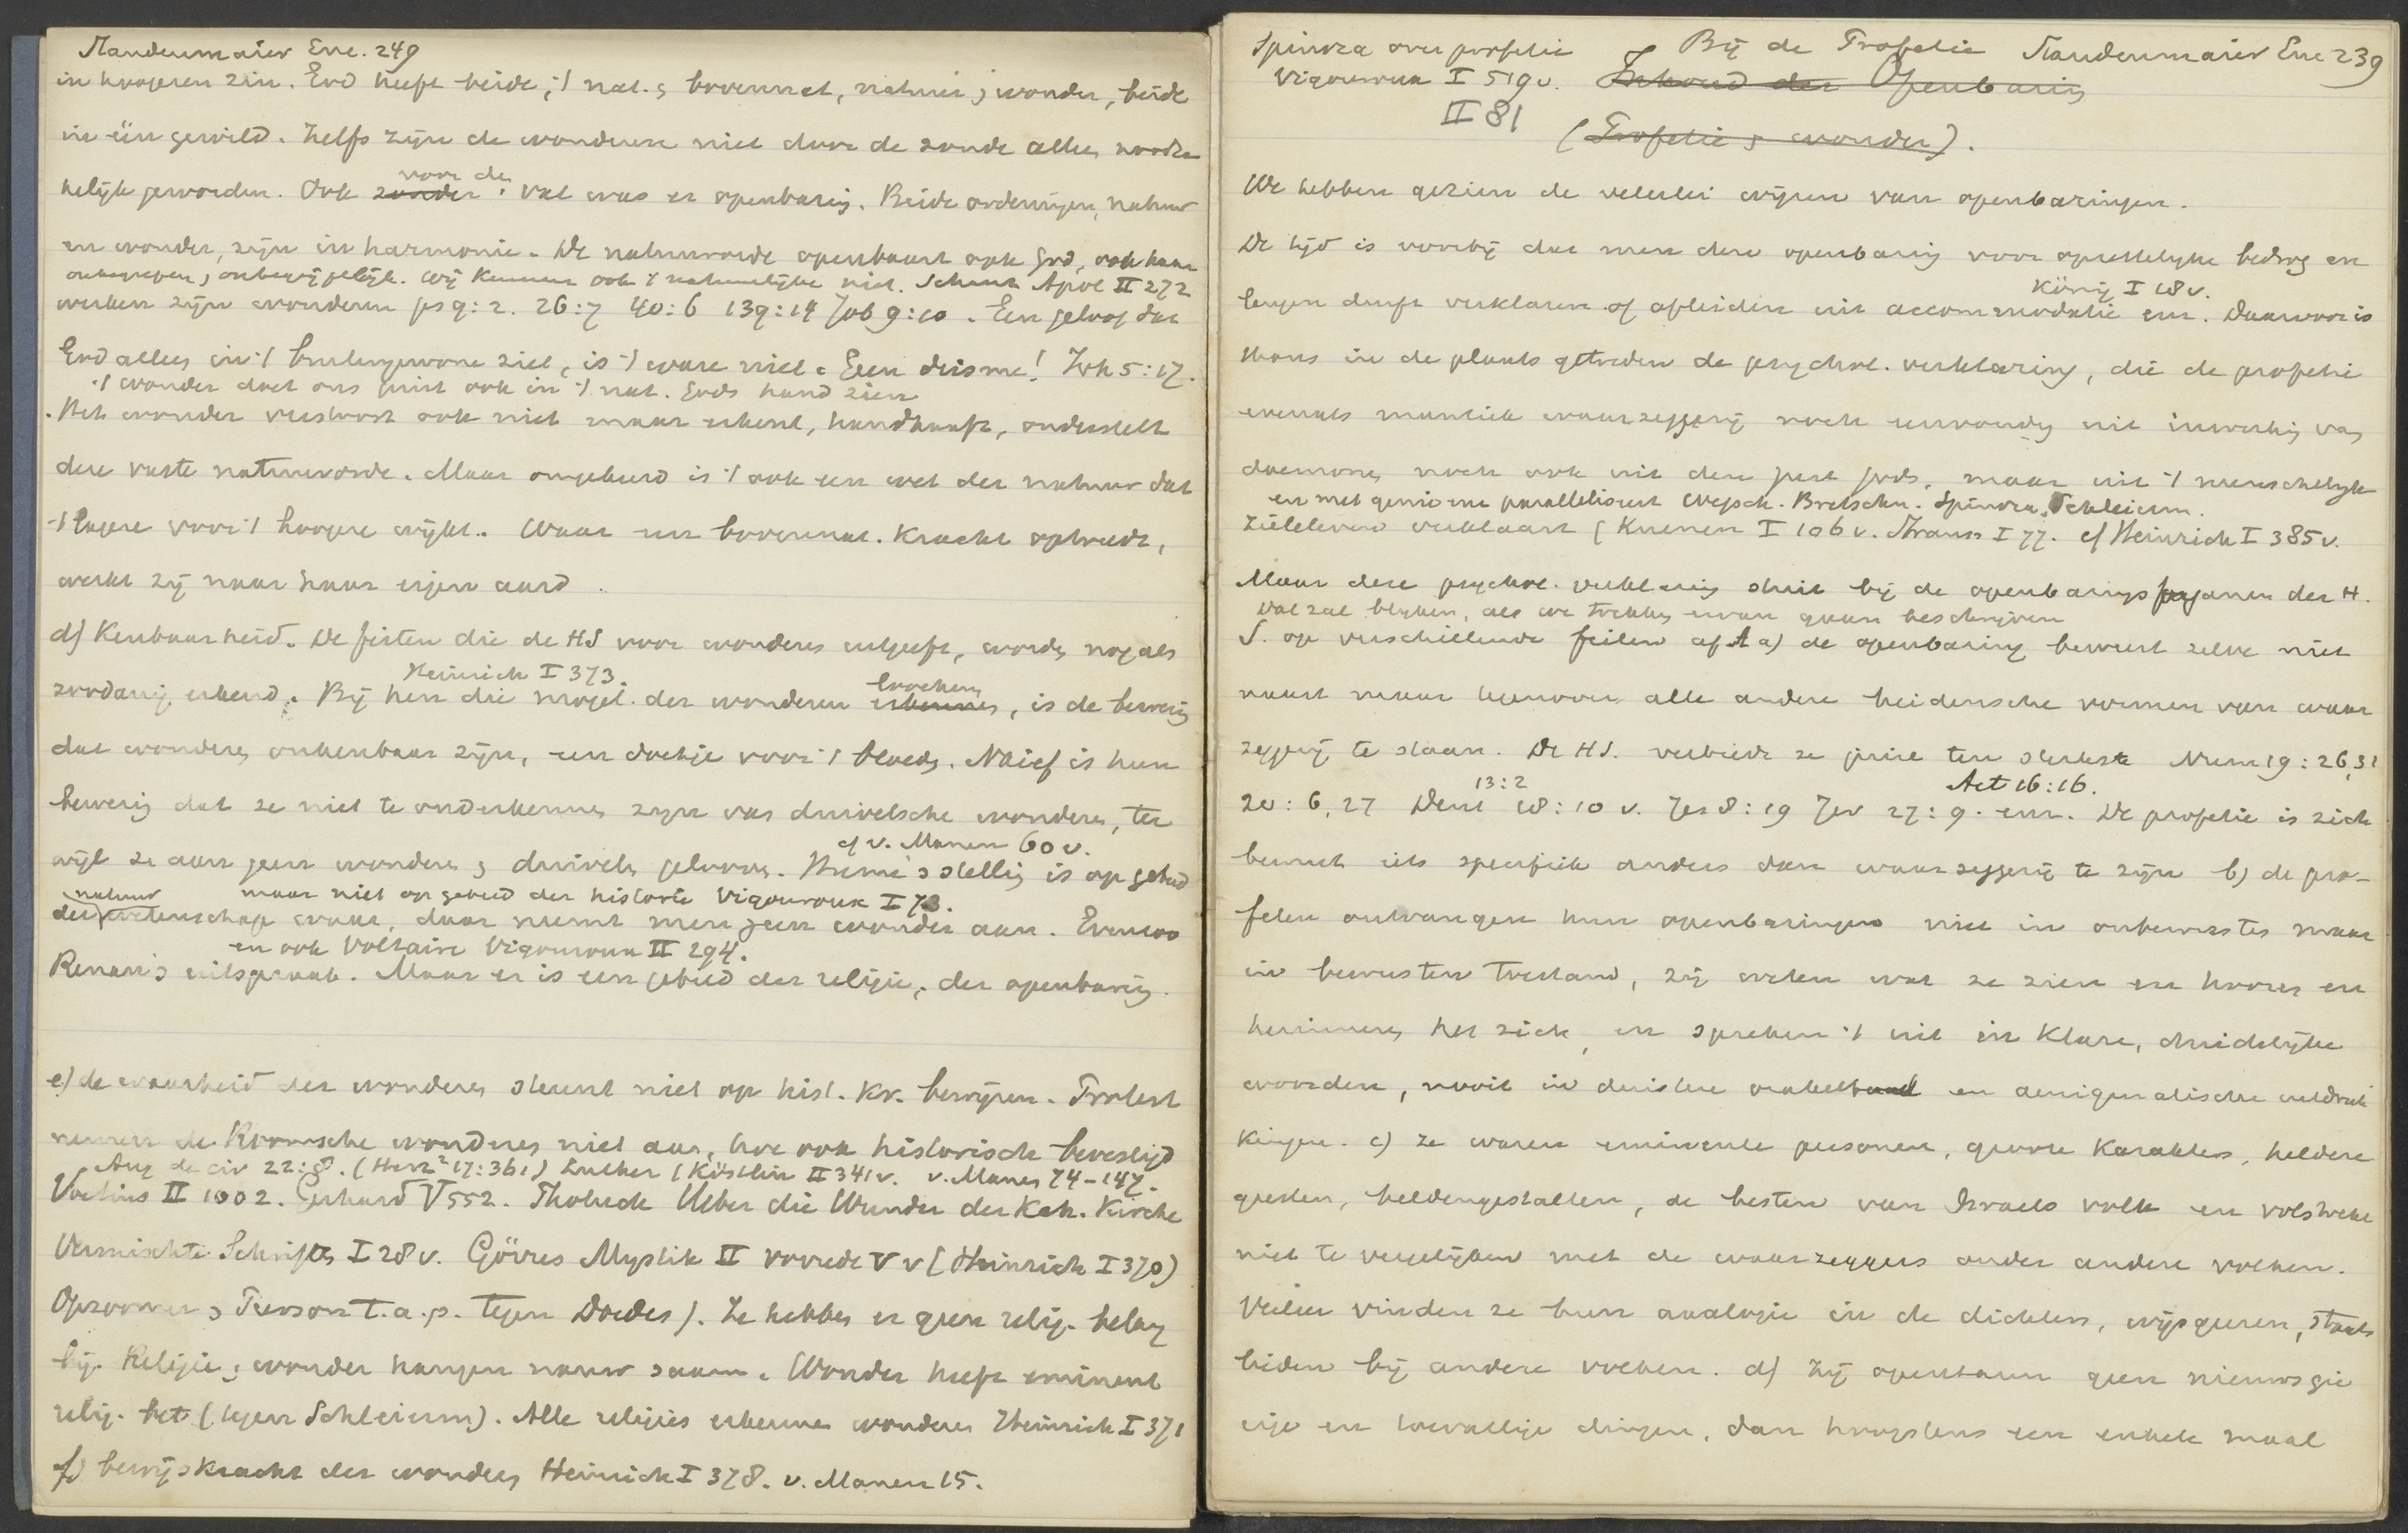 Staudenmaier Enc. 249
in hoogeren zin. God heeft beide, 't nat. & bovennat, natuur & wonder, beide
in één gewild. Zelfs zijn de wonderen niet door de zonde alleen noodza
kelijk geworden. Ook zonder voor de val was er openbaring. Beide ordeningen, natuur
en wonder, zijn in harmonie. De natuurorde openbaart ook God, ook haar
onbegrepen, onbegrijpelijk. Wij kennen ook 't natuurlijke niet. Schanz Apol II 272
werken zijn wonderen ps 9:2. 26:7 40:6 139:14 Job 9:10. Een geloof dat
God alleen in 't buitengewone ziet, is 't ware niet. Geen deisme! Joh 5:17.
't wonder doet ons juist ook in 't nat. Gods hand zien
Het wonder verstoort ook niet maar erkent, handhaaft, onderstelt
deze vaste natuurorde. Maar omgekeerd is 't ook een wet der natuur dat
't lagere voor 't hoogere wijkt. Waar een bovennat. kracht optreedt,
werkt zij naar haar eigen aard.
d) Kenbaarheid. De feiten die de HS voor wonderen uitgeeft, worden nog als
Heinrich I 373.
zoodanig erkend. Bij hen die mogel. der wonderen erkennen loochenen, is de bewering
dat wonderen onkenbaar zijn, een doekje voor 't bloeden. Naief is hun
bewering dat ze niet te onderkennen zijn van duivelsche wonderen, ter
cf v. Manen 60 v.
wijl ze aan geen wonderen & duivels gelooven. Hume's stelling is op gebied
natuur maar niet op gebied der historie Vigouroux I 73.
der wetenschap waar, daar neemt men geen wonder aan. Evenzoo
en ook Voltaire Vigouroux II 294.
Renan's uitspraak. Maar er is een gebied der religie, der openbaring.
e) de waarheid der wonderen steunt niet op hist. kr. bewijzen. Protest
nemen de Roomsche wonderen niet aan, hoe ook historisch bevestigd
Aug de civ 22:8. (Herz² 17:361) Luther (Köstlin II 341 v. v. Manen 74-147.
Voetius II 1002. Gerhard V 552. Tholuck Ueber die Wunder der Kath. Kirche
Vermischte Schriften I 28 v. Görres Mystik II vorrede V v (Heinrich I 370)
Opzoomer & Pierson t.a.p. tegen Doedes). Ze hebben er geen relig. belang
bij. Religie & wonder hangen nauw saam. Wonder heeft eminent
relig. bet. (tegen Schleierm). Alle religies erkennen wonderen Heinrich I 371
f) bewijskracht der wonderen Heinrich I 378. v. Manen 15.
Spinoza over profetie Bij de Profetie Staudenmaier Enc 239
Vigouroux I 519 v. Inhoud der Openbaring
II 81 (Profetie & wonder).
We hebben gezien de velerlei wijzen van openbaringen.
De tijd is voorbij dat men deze openbaring voor opzettelijke bedrog en
König I 18 v.
leugen durft verklaren of afleiden uit accommodatie enz. Daarvoor is
thans in de plaats getreden de psychol. verklaring, die de profetie
evenals mantiek waarzeggerij noch eenvoudig uit inwerking van
daemonen noch ook uit den geest Gods, maar uit 't menschelijk
en met genieën paralleliseert Wegsch. Bretschn. Spinoza, Schleierm.
zieleleven verklaart (Kuenen I 106 v. Strauss I 77. cf Heinrich I 385 v.
Maar deze psychol. verklaring stuit bij de openbaringsorganen der H.
Dat zal blijken, als we trekken ervan gaan beschrijven
S. op verschillende feiten af. a) de openbaring bewust zelve niet
naast maar tegenover alle andere heidensche vormen van waar
zeggerij te staan. De HS. verbiedt ze juist ten sterkste Num 19:26,31
13:2 Act 16:16.
20:6,27 Deut 18:10 v. Jes 8:19 Jer 27:9. enz. De profetie is zich
bewust iets specifiek anders dan waarzeggerij te zijn b) de pro-
feten ontvangen hun openbaringen niet in onbewusten maar
in bewusten toestand, zij weten wat ze zien en hooren en
herinneren het zich, en spreken 't uit in klare, duidelijke
woorden, nooit in duistere orakeltaal en aenigmatische uitdruk
kingen. c) ze waren eminente personen, groote karakters, heldere
geesten, heldengestalten, de besten van Israels volk en volstrekt
niet te vergelijken met de waarzeggers onder andere volken.
Veeleer vinden ze hun analogie in de dichters, wijsgeeren, staats
lieden bij andere volken. d) Zij openbaren geen nieuwsgie
rige en toevallige dingen, dan hoogstens een enkele maal